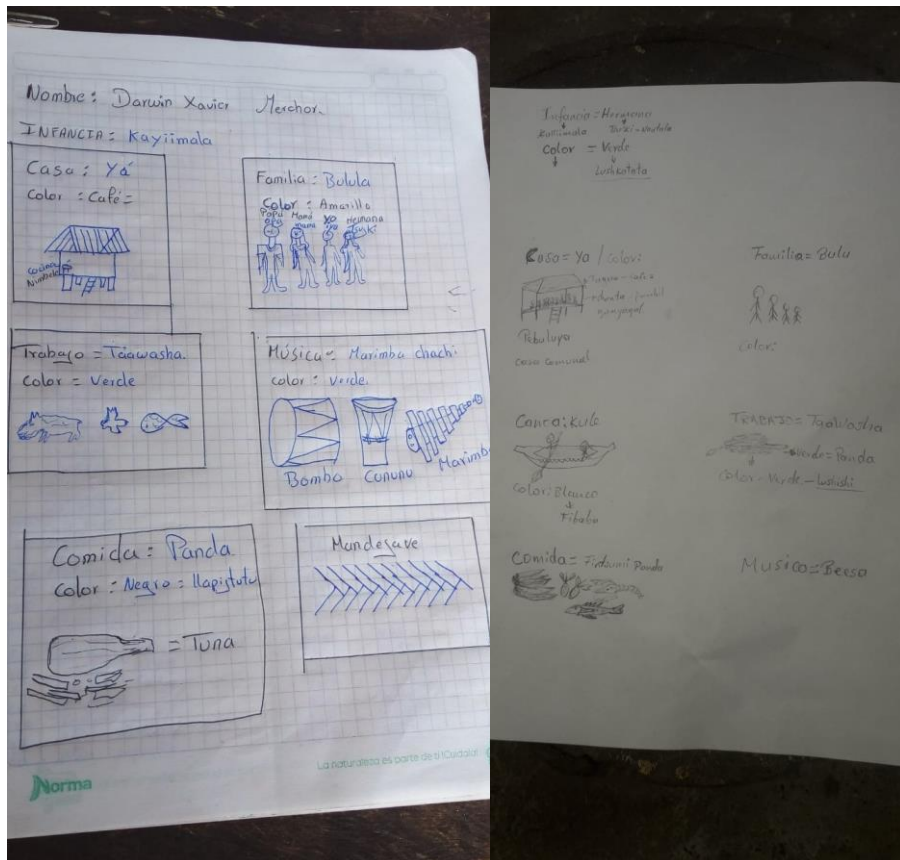 Nombre: Darwin Xavier Merchor.
INFANCIA: Kayiimala
Casa: Yá
Color: Café=
Cocina
Familia: Bulula
Color: Amarillo
Papá Mamá Yo Hermana
Tsuski
Trabajo = Táawasha.
Color = Verde
Música = Marimba chachi.
color: Verde.
Bombo Cununu Marimba
Comida: Panda
Color: Negro = llapistutu
= Tuna
Mandesave
La naturaleza es parte de ti !Cuídala!
Norma
Infancia = Hermano
Kaillimala
Color = Verde
Lushkatata
Casa = Ya / Color:
Pebuluya
casa comunal
Familia = Bulu
Color:
Canoa: Kule
Color: Blanco
Fibaba
TRABAJO = Tyawasha
verde = Panda
Color. Verde - Lushishi
Comida = Panda
Musica = Beeso